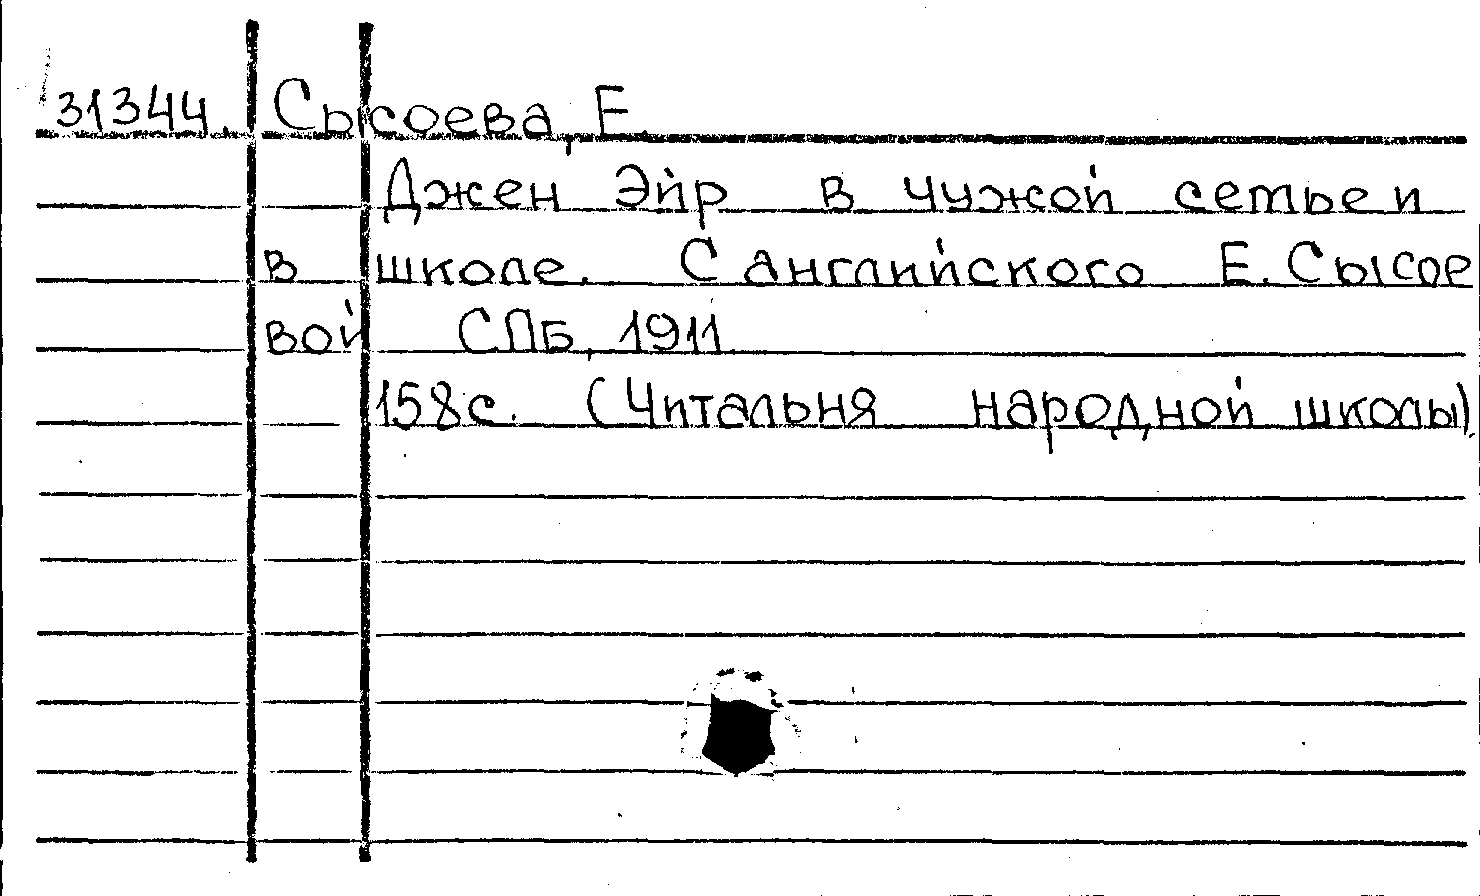 31344. Сысоева, Е.
Джен Эйр в чужой семье и
в школе. С английского Е. Сысое
вой СПБ, 1911.
158с. (Читальня народной школы).